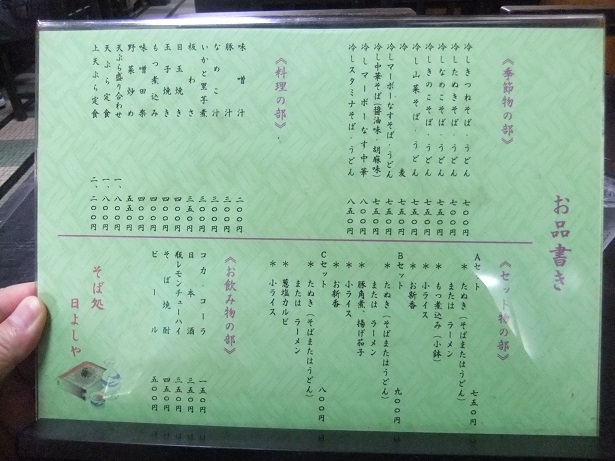 お品書き
《季節物の部》
冷しきつねそば・うどん 七〇〇円
冷したぬきそば・うどん 七〇〇円
冷しなめこそば・うどん 七五〇円
冷しきのこそば・うどん 七五〇円
冷し山菜そば・うどん 七五〇円
冷し麦
冷しマーボーなすそば・うどん 七五〇円
冷し中華そば(醤油味・胡麻味) 七五〇円
冷しマーボーなす中華
冷しスタミナそば・うどん 八五〇円
《料理の部》
味噌汁 二〇〇円
豚汁 三〇〇円
なめこ汁 三〇〇円
いかと里芋煮 三〇〇円
板わさ 三五〇円
目玉焼き 四〇〇円
玉子焼き 四〇〇円
もつ煮込み 四〇〇円
味噌田楽 四〇〇円
野菜炒め 五五〇円
天ぷら盛り合わせ
天ぷら定食 一、八〇〇円
上天ぷら定食 二、二〇〇円
《セット物の部》
Aセット 七五〇円
*たぬき(そばまたはうどん)
または ラーメン
*もつ煮込み(小鉢)
*小ライス
*お新香
Bセット 九〇〇円
*たぬき(そばまたはうどん)
または ラーメン
*豚角煮、揚げ茄子
*小ライス
*お新香
Cセット 八〇〇円
*たぬき(そばまたはうどん)
または ラーメン
*葱塩カルビ
*小ライス
《お飲み物の部》
コカ・コーラ 一五〇円
日本酒 三五〇円
瓶レモンチューハイ 三五〇円
そば焼酎 四五〇円
ビール 五〇〇円
そば処
日よしや